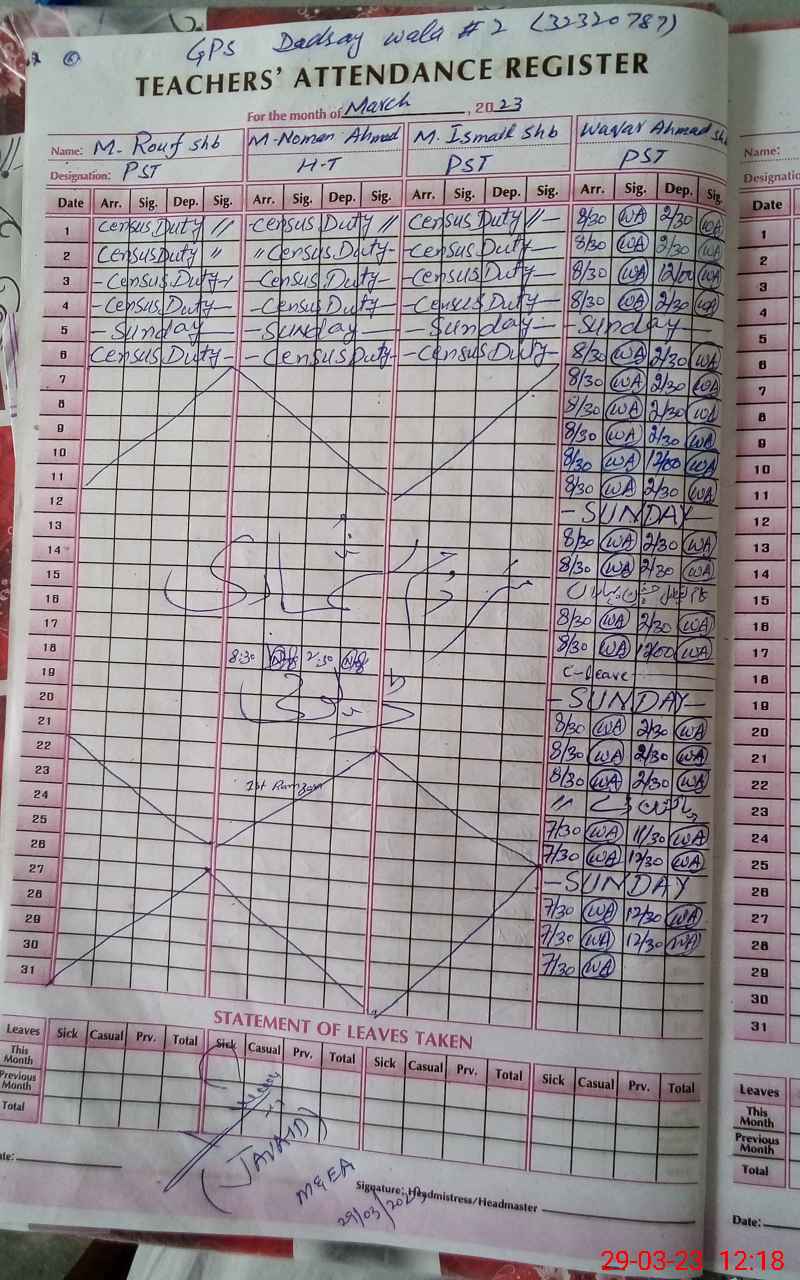 GPS Dadsay wala # 2 (32320787)
TEACHERS' ATTENDANCE REGISTER
For the month of March, 2023
Name: M. Rouf shb M-Noman Ahmad M. Ismail shb Waqar Ahmad shb Name:
Designation: PST H-T PST PST
Date Arr. Sig. Dep. Sig. Arr. Sig. Dep. Sig. Arr. Sig. Dep. Sig. Arr. Sig. Dep. Sig. Date
1 Census Duty // -Census Duty // Census Duty //- 8/30 WA 2/30 WA 1
2 Census Duty " " Census Duty- -Census Duty- 8/30 WA 2/30 WA 2
3 -Census Duty- -Census Duty- -Census Duty- 8/30 WA 12/00 WA 3
4 -Census Duty- -Census Duty- -Census Duty- 8/30 WA 2/30 WA 4
5 -Sunday- -Sunday- -Sunday- -Sunday- 5
6 Census Duty- -Census Duty- -Census Duty- 8/30 WA 2/30 WA 6
7 8/30 WA 2/30 WA 7
8 8/30 WA 2/30 WA 8
9 8/30 WA 2/30 WA 9
10 8/30 WA 12/00 WA 10
11 8/30 WA 2/30 WA 11
12 -SUNDAY- 12
13 8/30 WA 2/30 WA 13
14 8/30 WA 2/30 WA 14
15 15
16 8/30 WA 2/30 WA 16
17 8/30 WA 12/00 WA 17
18 8:30 2:30 C-leave 18
19 -SUNDAY- 19
20 8/30 WA 2/30 WA 20
21 8/30 WA 2/30 WA 21
22 8/30 WA 2/30 WA 22
23 1st Ramzan // 23
24 7/30 WA 11/30 WA 24
25 7/30 WA 12/30 WA 25
26 -SUNDAY 26
27 7/30 WA 12/30 WA 27
28 7/30 WA 12/30 WA 28
29 7/30 WA 29
30 30
31 31
STATEMENT OF LEAVES TAKEN
Leaves Sick Casual Prv. Total Sick Casual Prv. Total Sick Casual Prv. Total Sick Casual Prv. Total Leaves
This Month This Month
Previous Month Previous Month
Total Total
(JAVAID)
MEEA
29/03/2023
Signature: Headmistress/Headmaster
Date:
29-03-23 12:18